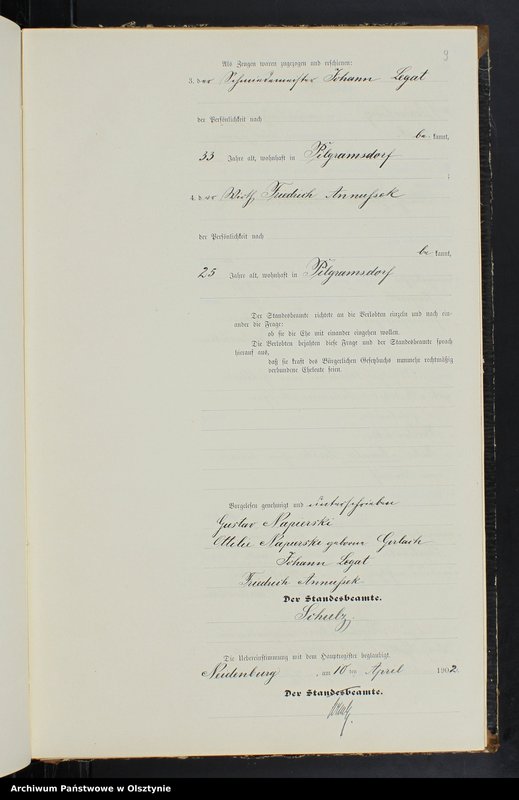 9
Als Zeugen waren zugezogen und erschienen:
3. der Schmiedemeister Johann Legat
der Persönlichkeit nach
be kannt,
33 Jahre alt, wohnhaft in Pilgramsdorf
;
4. der Wirth Friedrich Annussek
der Persönlichkeit nach
be kannt,
25 Jahre alt, wohnhaft in Pilgramsdorf
Der Standesbeamte richtete an die Verlobten einzeln und nach ein-
ander die Frage:
ob sie die Ehe mit einander eingehen wollen.
Die Verlobten bejahten diese Frage und der Standesbeamte sprach
hierauf aus,
daß sie kraft des Bürgerlichen Gesetzbuchs nunmehr rechtmäßig
verbundene Eheleute seien.
Vorgelesen, genehmigt und unterschrieben
Gustav Napierski
Ottilie Napierski geborene Gerlach
Johann Legat
Friedrich Annussek
Der Standesbeamte.
Schulz
Die Uebereinstimmung mit dem Hauptregister beglaubigt.
Neidenburg, am 10ten April 1902.
Der Standesbeamte.
Archiwum Państwowe w Olsztynie